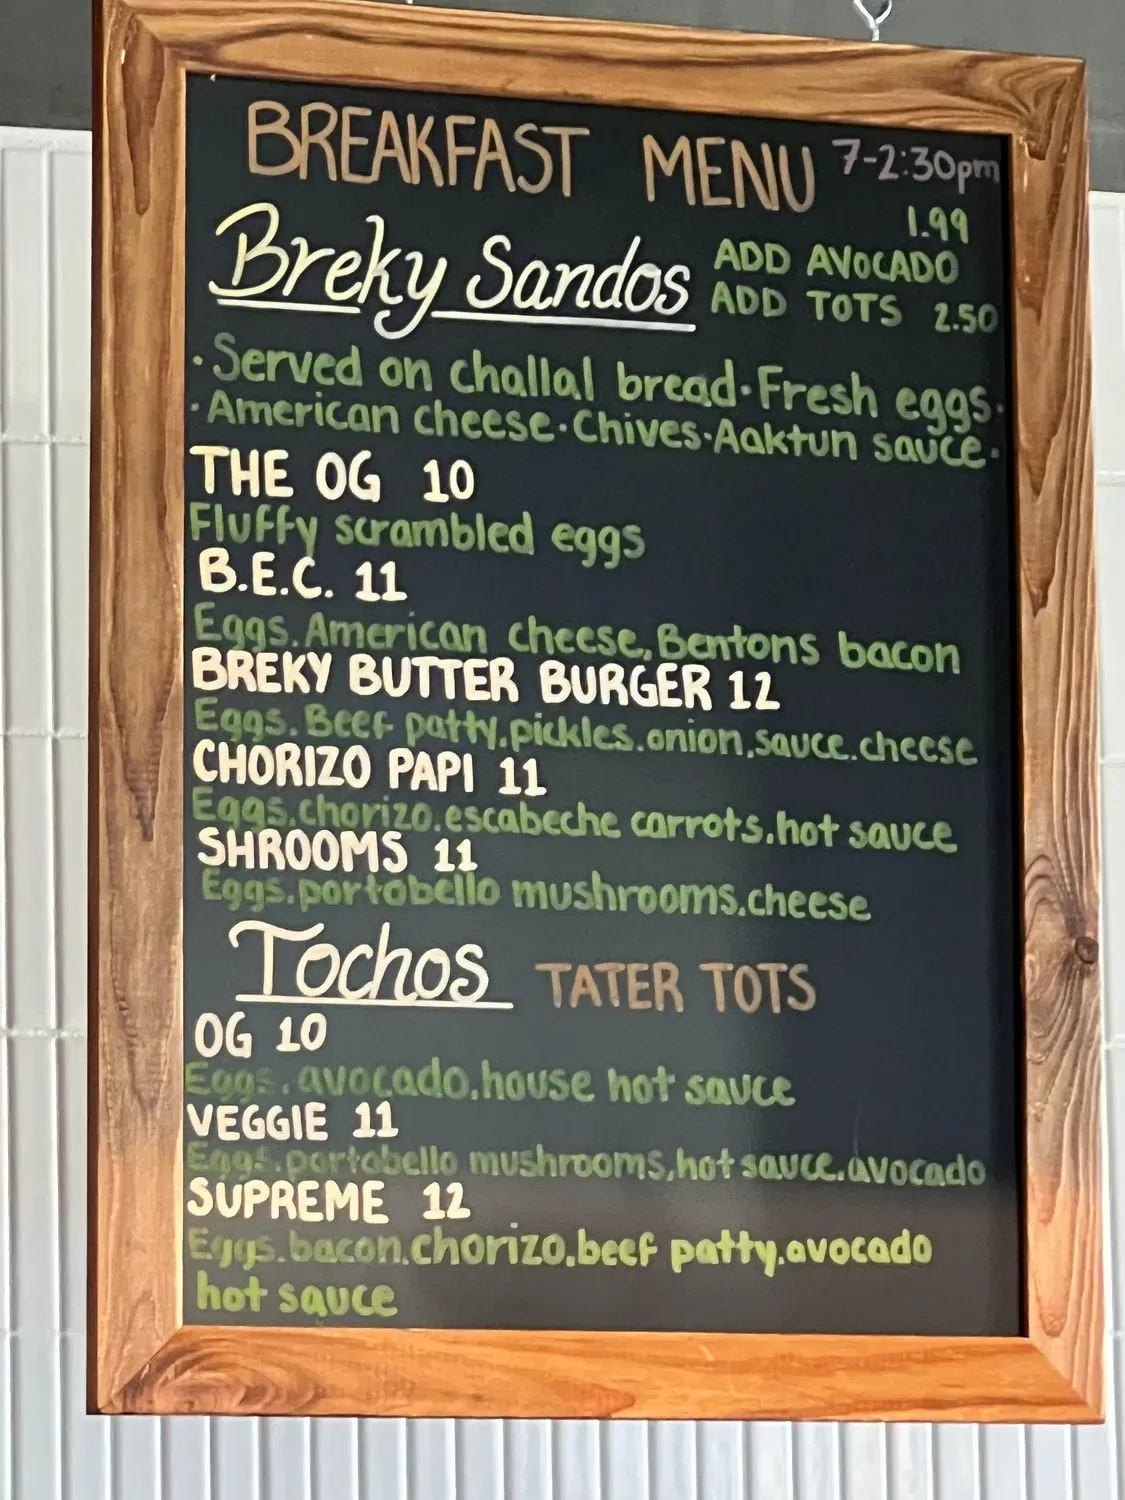 BREAKFAST MENU 7-2:30pm
1.99
Breky Sandos ADD AVOCADO
ADD TOTS 2.50
·Served on challal bread·Fresh eggs·
·American cheese·Chives·Aaktun sauce·
THE OG 10
Fluffy scrambled eggs
B.E.C. 11
Eggs.American cheese,Bentons bacon
BREKY BUTTER BURGER 12
Eggs.Beef patty,pickles.onion,sauce.cheese
CHORIZO PAPI 11
Eggs.chorizo.escabeche carrots.hot sauce
SHROOMS 11
Eggs.portobello mushrooms.cheese
Tochos TATER TOTS
OG 10
Eggs.avocado.house hot sauce
VEGGIE 11
Eggs.portobello mushrooms,hot sauce.avocado
SUPREME 12
Eggs.bacon.chorizo.beef patty.avocado
hot sauce